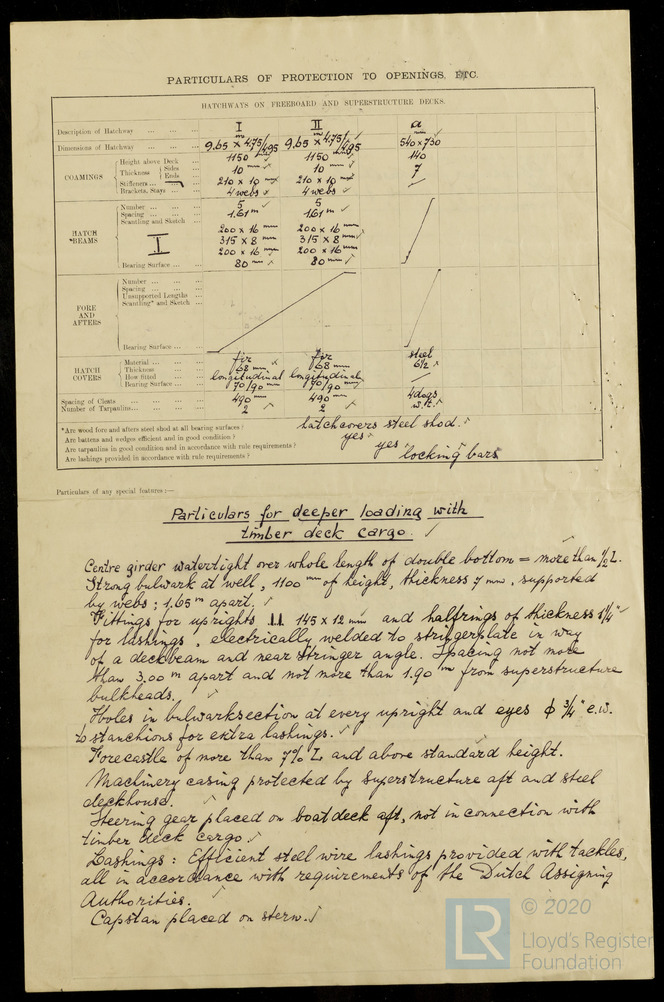 PARTICULARS OF PROTECTION TO OPENINGS, ETC.
HATCHWAYS ON FREEBOARD AND SUPERSTRUCTURE DECKS.
Description of Hatchway ... ... ... I II a
Dimensions of Hatchway ... ... ... 9,65 m × 4.75/4.95 9,65 m × 4.75/4.95 540 × 730 mm
COAMINGS
Height above Deck ... 1150 mm 1150 mm 140
Thickness { Sides ... Ends ... 10 mm 10 mm 7
Stiffeners ... 210 × 10 mm 210 × 10 mm
Brackets, Stays ... ... 4 webs 4 webs
HATCH *BEAMS
Number ... ... ... 5 5
Spacing ... ... ... 1.61 m 1.61 m
Scantling and Sketch ...
200 × 16 mm 200 × 16 mm
I 315 × 8 mm 315 × 8 mm
200 × 16 mm 200 × 16 mm
Bearing Surface ... ... 80 mm 80 mm
FORE AND AFTERS
Number ... ... ...
Spacing ... ... ...
Unsupported Lengths ...
Scantling* and Sketch ...
Bearing Surface ... ...
HATCH COVERS
Material ... ... ... fir fir steel
Thickness ... ... 68 mm 68 mm 6½
How fitted ... ... longitudinal longitudinal
Bearing Surface ... ... 70/90 mm 70/90 mm
Spacing of Cleats ... ... ... 490 mm 490 mm 4 dogs
Number of Tarpaulins ... ... ... 2 2 w.t.
*Are wood fore and afters steel shod at all bearing surfaces? hatchcovers steel shod.
Are battens and wedges efficient and in good condition? yes
Are tarpaulins in good condition and in accordance with rule requirements? yes
Are lashings provided in accordance with rule requirements? locking bars
Particulars of any special features:—
Particulars for deeper loading with
timber deck cargo.
Centre girder watertight over whole length of double bottom = more than ½ L.
Strong bulwark at well, 1100 mm of height, thickness 7 mm, supported
by webs; 1,65 m apart.
Fittings for uprights 145 × 12 mm and halfrings of thickness 1¼"
for lashings, electrically welded to stringerplate in way
of a deckbeam and near stringer angle. Spacing not more
than 3.00 m apart and not more than 1.90 m from superstructure
bulkheads.
Holes in bulwarksection at every upright and eyes ϕ ¾" e.w.
to stanchions for extra lashings.
Forecastle of more than 7% L and above standard height.
Machinery casing protected by superstructure aft and steel
deckhouse.
Steering gear placed on boatdeck aft, not in connection with
timber deck cargo.
Lashings: Efficient steel wire lashings provided with tackles,
all in accordance with requirements of the Dutch Assigning
Authorities.
Capstan placed on stern.
LR
© 2020
Lloyd's Register
Foundation